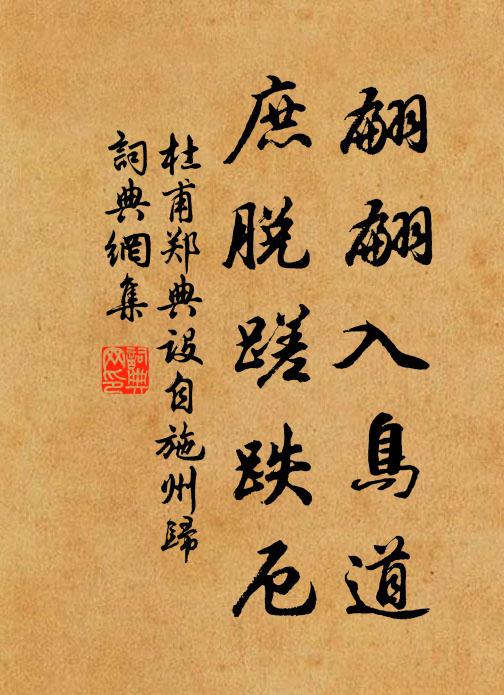 翩翩入鳥道
庶脫蹉跌厄
杜甫鄭典設自施州歸
詞典網集
詞典
网印